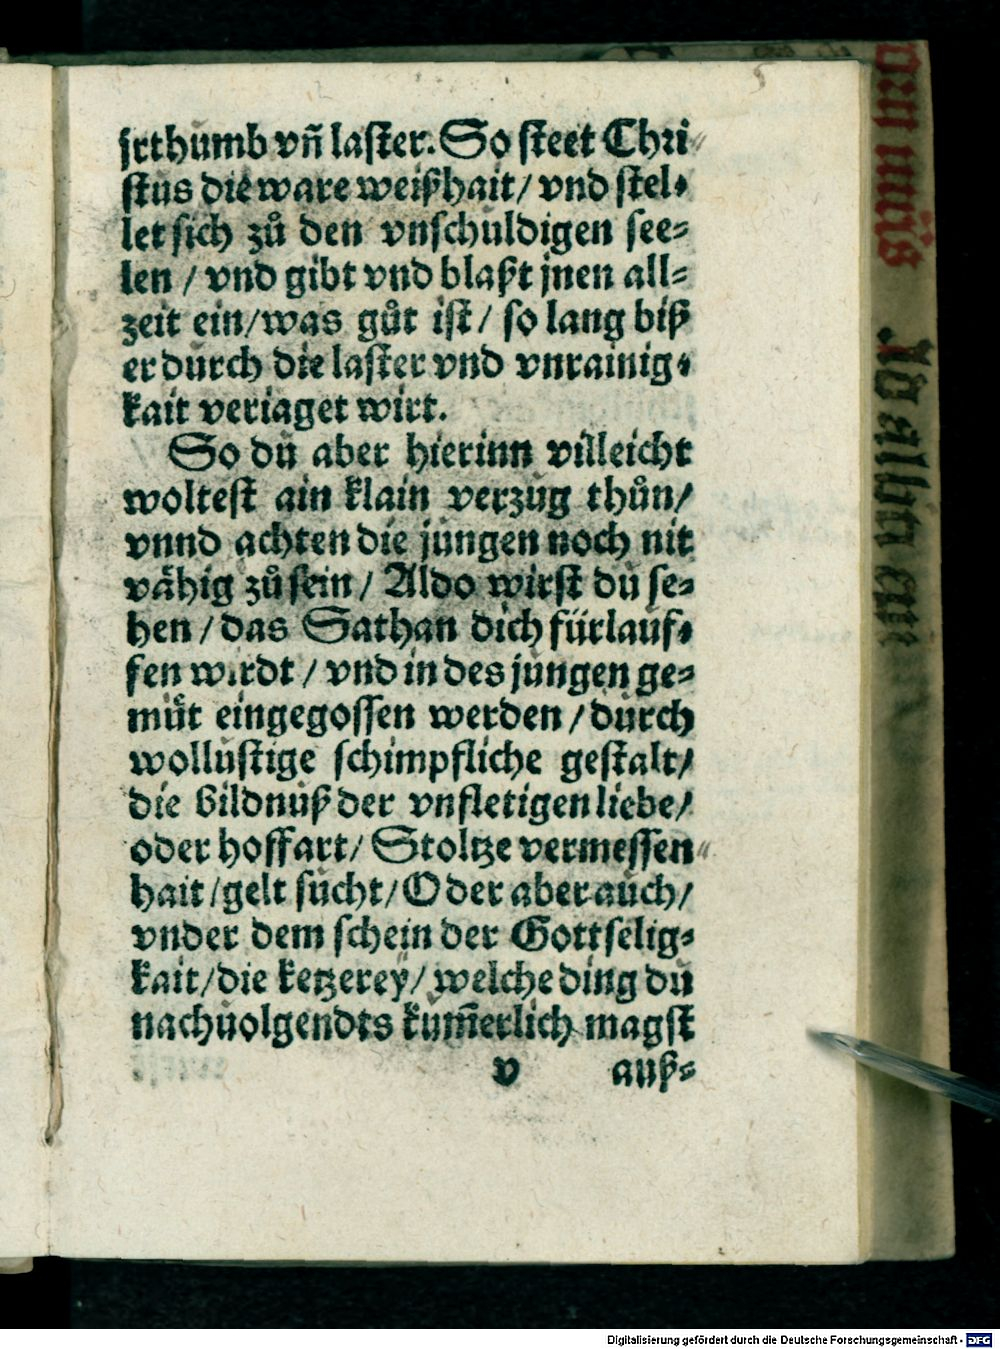 jrthumb vñ laster. So steet Chri
stus die ware weißhait/ vnd stel-
let sich zů den vnschuldigen see-
len / vnd gibt vnd blaßt jnen all-
zeit ein/was gůt ist/ so lang biß
er durch die laster vnd vnrainig-
kait veriaget wirt.
So du aber hierinn villeicht
woltest ain klain verzug thůn/
vnnd achten die jungen noch nit
vähig zů sein / Aldo wirst du se-
hen / das Sathan dich fürlauf-
fen wirdt / vnd in des jungen ge-
müt eingegossen werden / durch
wollustige schimpfliche gestalt/
die bildnuß der vnfletigen liebe/
oder hoffart/ Stoltze vermessen
hait/gelt sucht/Oder aber auch/
vnder dem schein der Gottselig-
kait/die ketzerey/ welche ding du
nachuolgendts kum̃erlich magst
v auß-
Digitalisierung gefördert durch die Deutsche Forschungsgemeinschaft - DFG